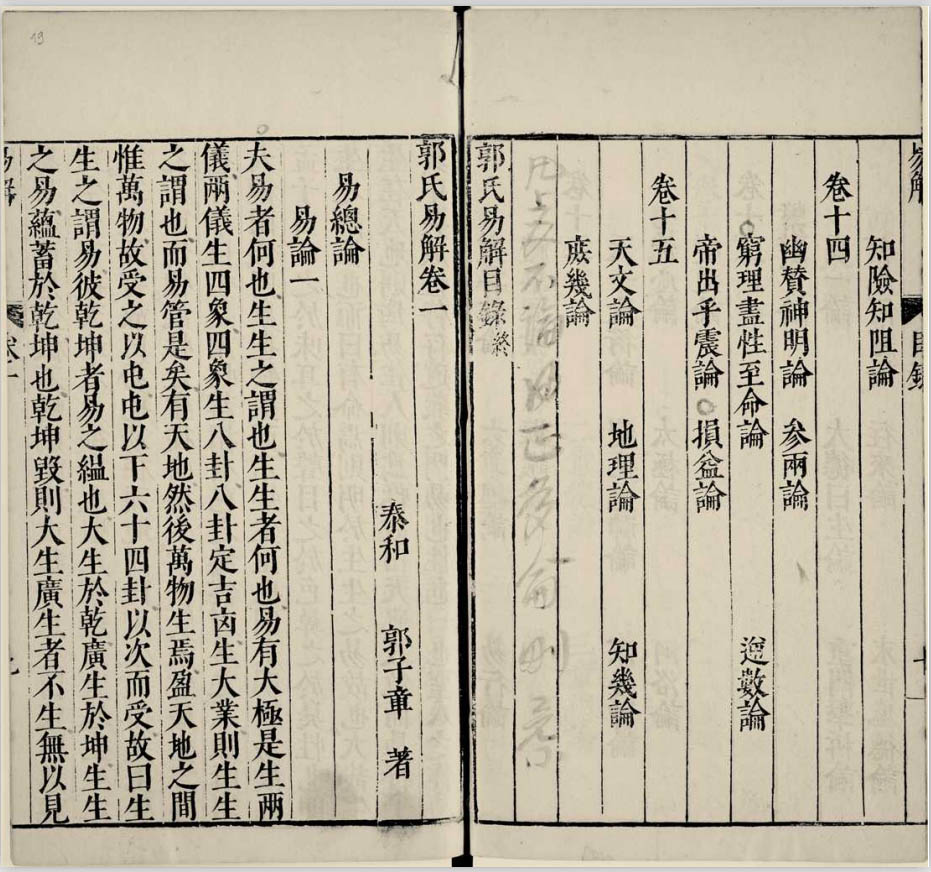 知險知阻論
卷十四
幽贊神明論　參兩論
窮理盡性至命論　逆數論
帝出乎震論　損益論
卷十五
天文論　地理論　知幾論
庶幾論
郭氏易解目錄終
郭氏易解卷一
泰和　郭子章　著
易總論
易論一
夫易者何也生生之謂也生生者何也易有大極是生兩
儀兩儀生四象四象生八卦八卦定吉凶生大業則生生
之謂也而易管是矣有天地然後萬物生焉盈天地之間
惟萬物故受之以屯屯以下六十四卦以次而受故曰生
生之謂易彼乾坤者易之縕也大生於乾廣生於坤生生
之易蘊蓄於乾坤也乾坤毀則大生廣生者不生無以見
易解　卷一
19